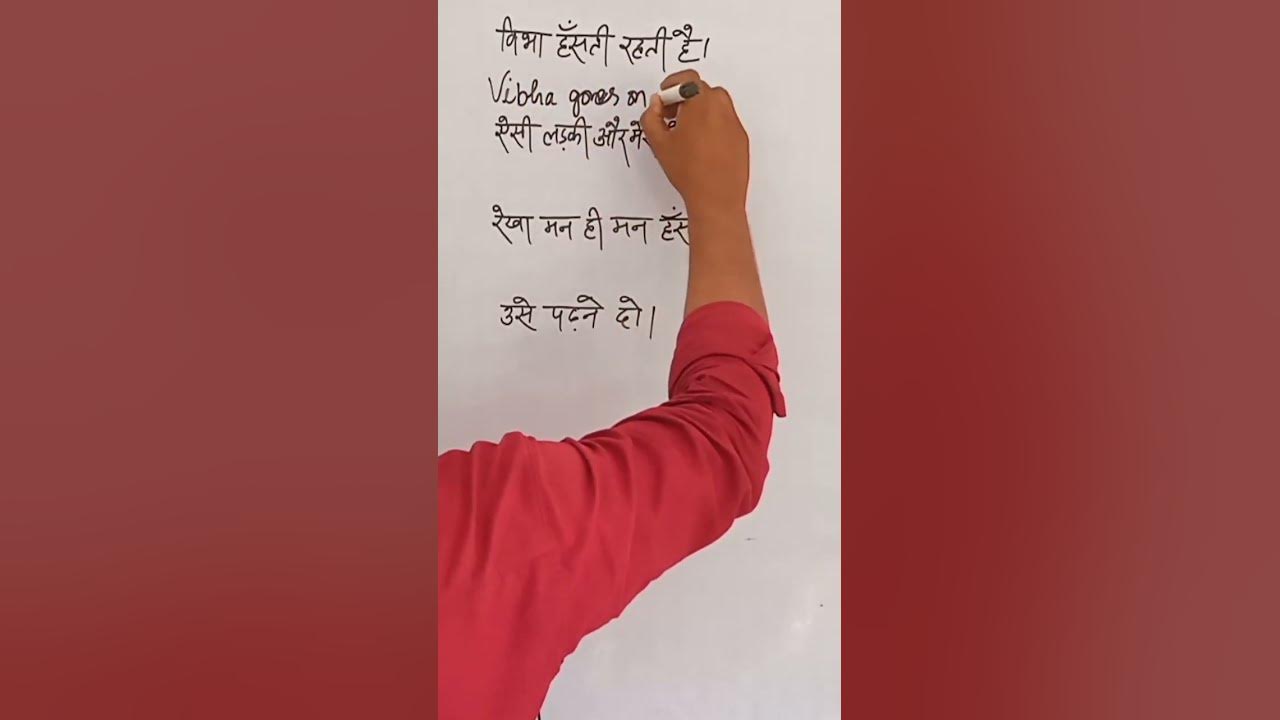 विभा हँसती रहती है।
Vibha goes on
ऐसी लड़की और
रेखा मन ही मन
उसे पढ़ने दो।